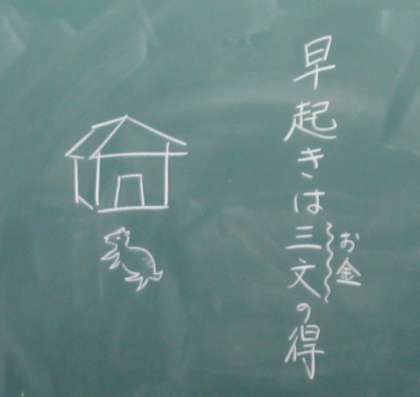 早起きは三文の得
お金